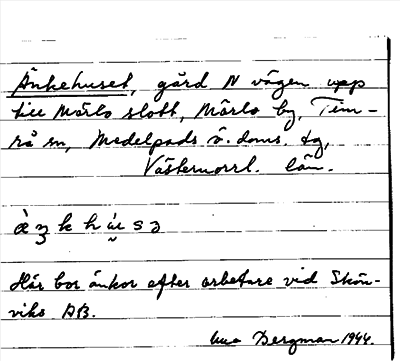 Änkehuset, gård N vägen upp
till Märlo slott, Märlo by, Tim-
rå sn, Medelpads ö. doms. tg,
Västernorrl. län.
Här bor änkor efter arbetare vid Skön-
viks AB.
Bergman 1944.